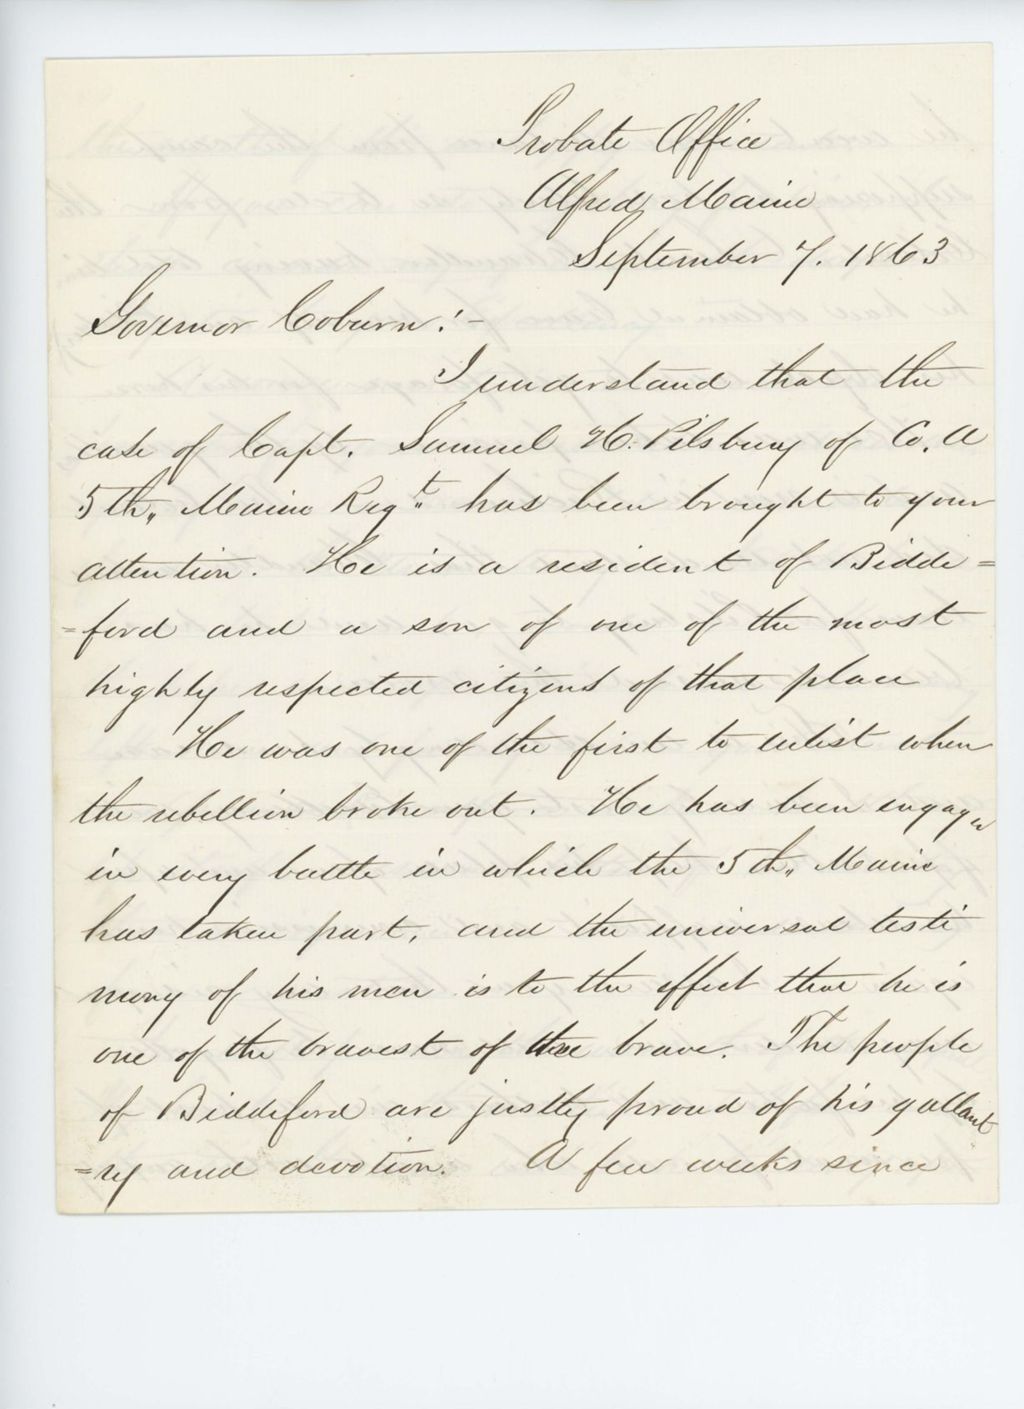 Probate Office
Alfred, Maine
September 7. 1863
Governor Coburn :-
I understand that the
case of Capt. Samuel H. Pilsbury of Co. A
5th,, Maine Regt. has been brought to your
attention. He is a resident of Bidde=
=ford and a son of one of the most
highly respected citizens of that place
He was one of the first to enlist when
the rebellion broke out. He has been engaged
in every battle in which the 5th,, Maine
has taken part, and the universal testi
mony of his men is to the effect that he is
one of the bravest of the brave. The people
of Biddeford are justly proud of his gallant
=ry and devotion. A few weeks since